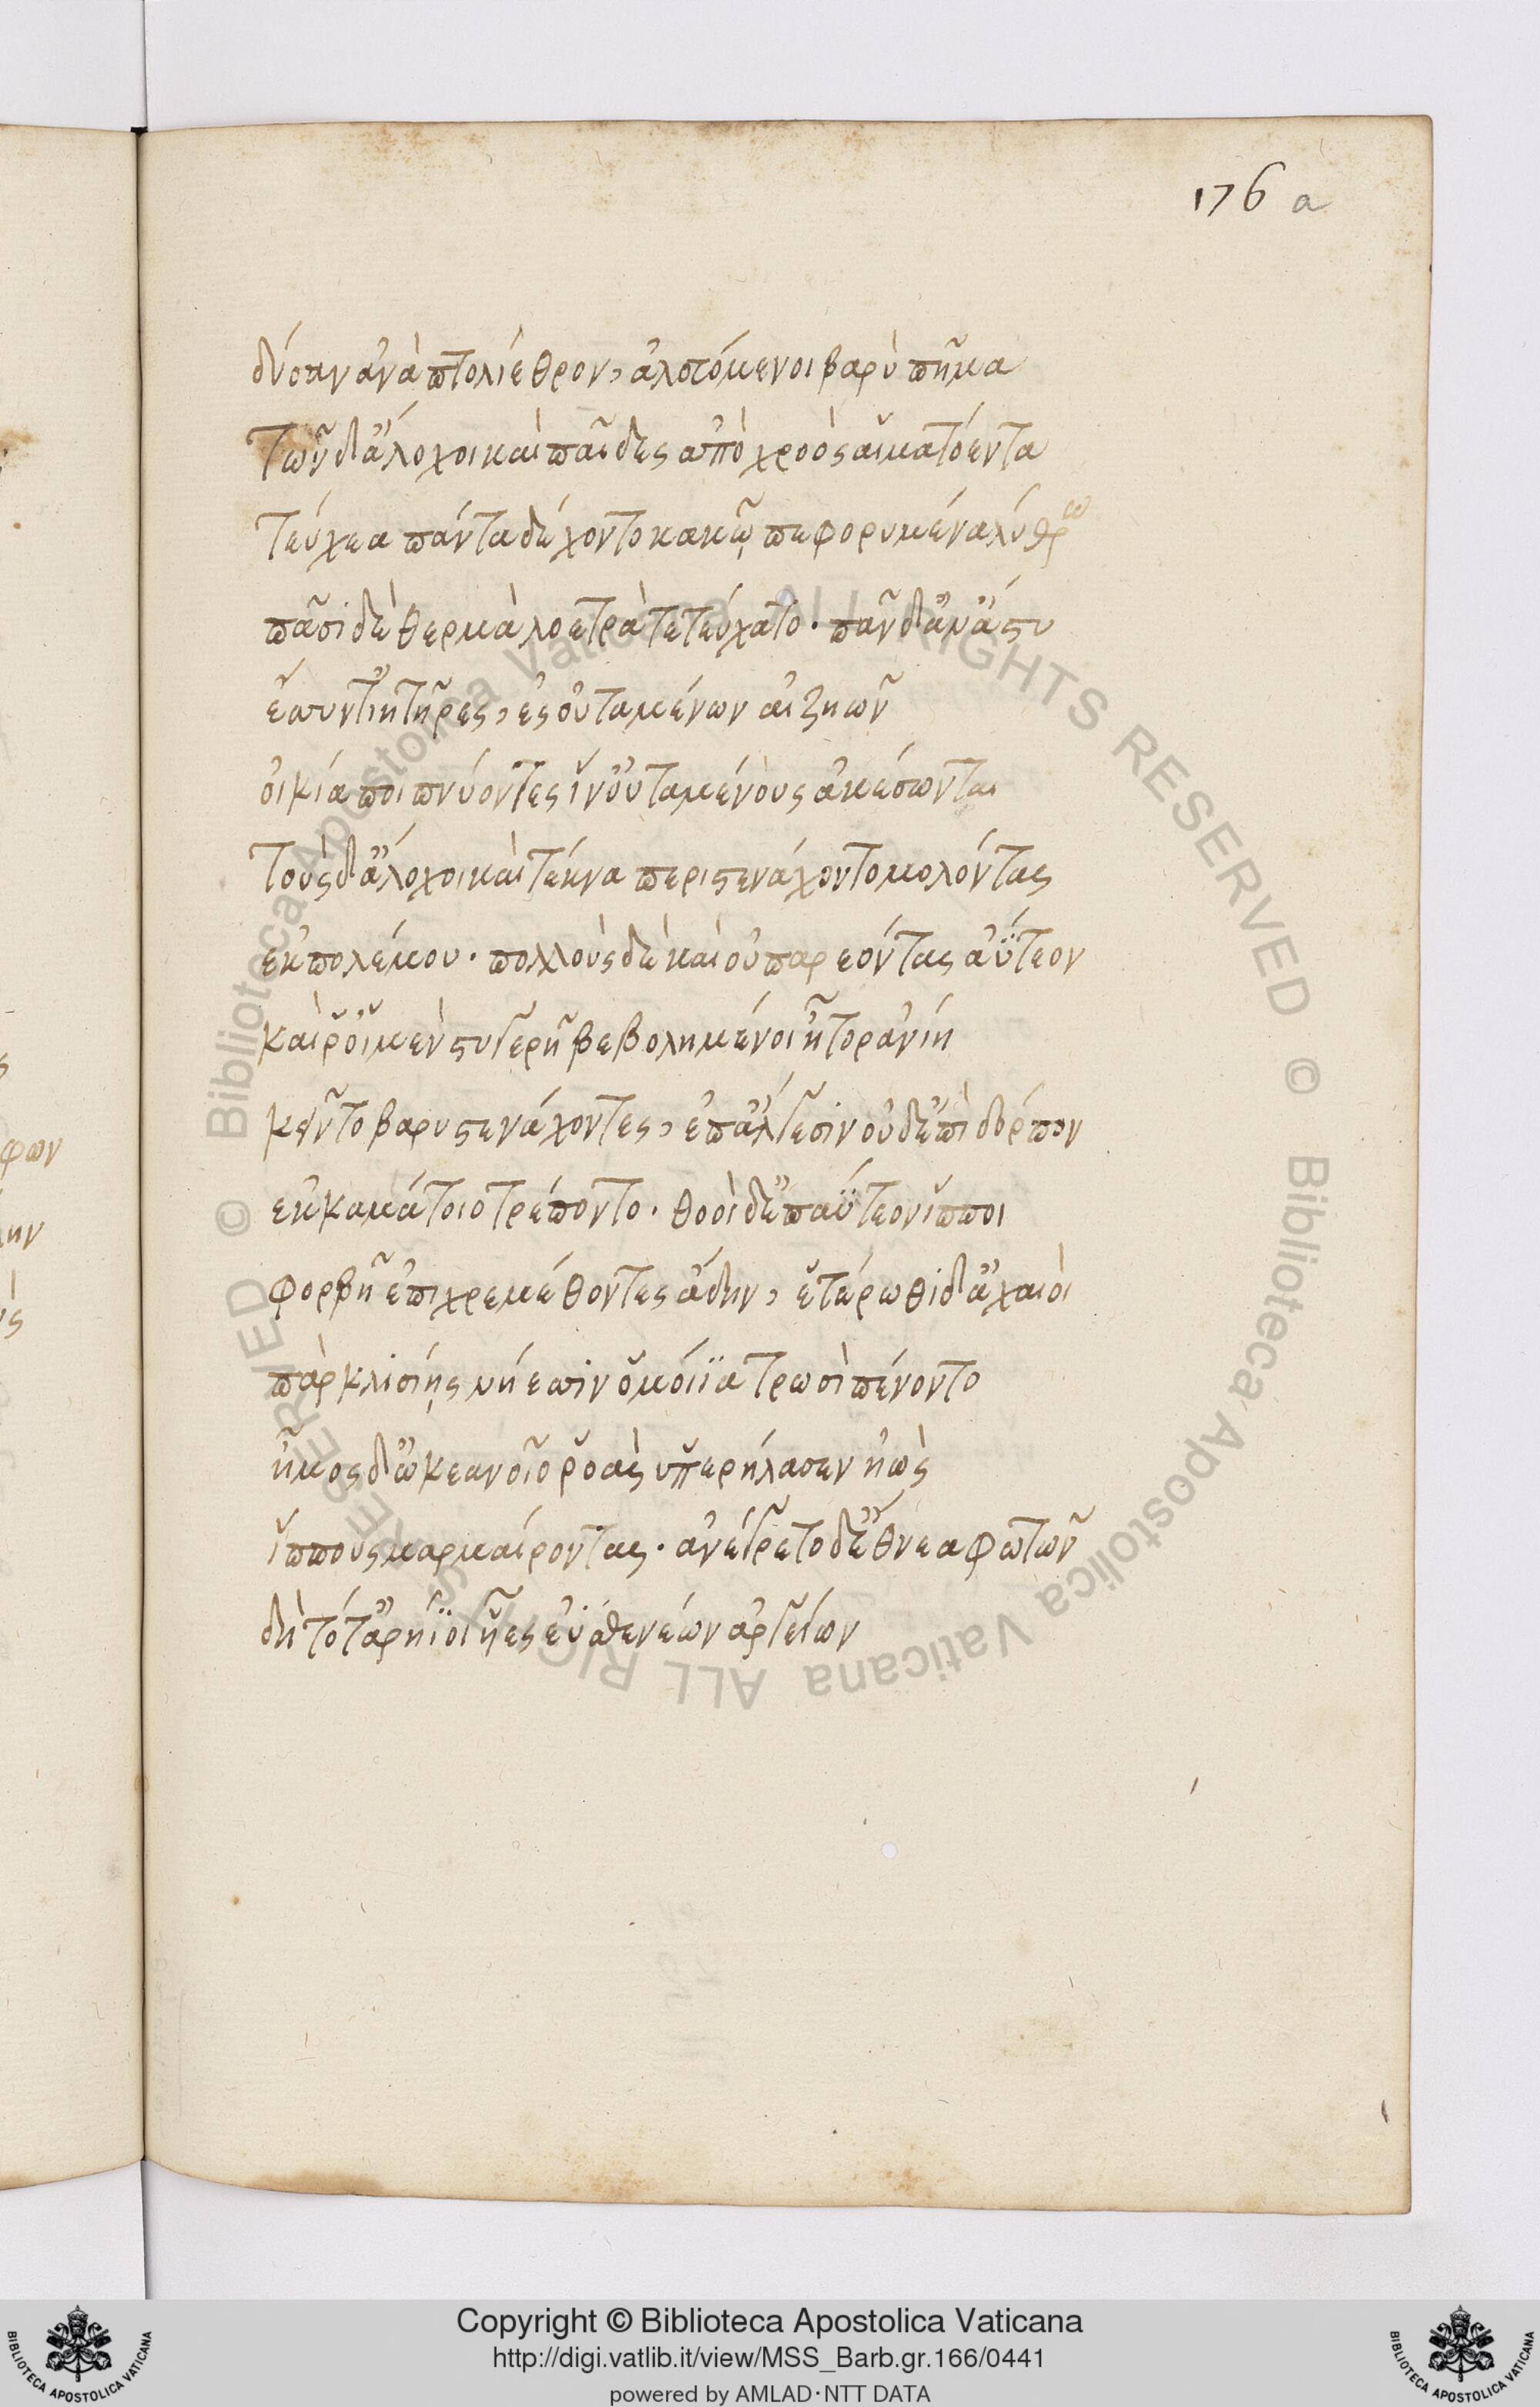 176 a
δύσαν ἀνὰ πτολίεθρον, ἀλευόμενοι βαρὺ πῆμα
τῶν δ' ἄλοχοι καὶ παῖδες ἀπὸ χροὸς αἱματόεντα
τεύχεα πάντα δέχοντο κακῷ πεφορυμένα λύθρῳ
πᾶσι δὲ θερμὰ λοετρὰ τετεύχατο· πᾶν δ' ἀνὰ ἄστυ
ἔσσυντ' ἰητῆρες, ἐς οὐταμένων αἰζηῶν
οἰκία ποιπνύοντες ἵν' οὐταμένους ἀκέσωνται
τοὺς δ' ἄλοχοι καὶ τέκνα περιστενάχοντο μολόντας
ἐκ πολέμου· πολλοὺς δὲ καὶ οὐ παρεόντας ἀΰτεον
καί ῥ' οἳ μὲν στυγερῇ βεβολημένοι ἦτορ ἀνίῃ
κεῖντο βαρυστενάχοντες, ἐπ' ἄλγεσιν οὐδ' ἐπὶ δόρπον
ἐκ καμάτοιο τρέποντο· θοοὶ δ' ἐπαΰτεον ἵπποι
φορβῇ ἐπιχρεμέθοντες ἄδην, ἑτέρωθι δ' ἀχαιοὶ
πὰρ κλισίῃς νήεσσιν ὁμοίϊα τρωσὶ πένοντο
ἦμος δ' ὠκεανοῖο ῥοὰς ὑπερήλασεν ἠὼς
ἵππους μαρμαίροντας· ἀνέγρετο δ' ἔθνεα φωτῶν
δὴ τότ' ἀρήϊοι ἧες ἐϋσθενέων ἀργείων
φων
ην
Copyright © Biblioteca Apostolica Vaticana
http://digi.vatlib.it/view/MSS_Barb.gr.166/0441
powered by AMLAD·NTT DATA
BIBLIOTECA APOSTOLICA VATICANA
BIBLIOTECA APOSTOLICA VATICANA
© Biblioteca Apostolica Vaticana ALL RIGHTS RESERVED © Biblioteca Apostolica Vaticana ALL RIGHTS RESERVED